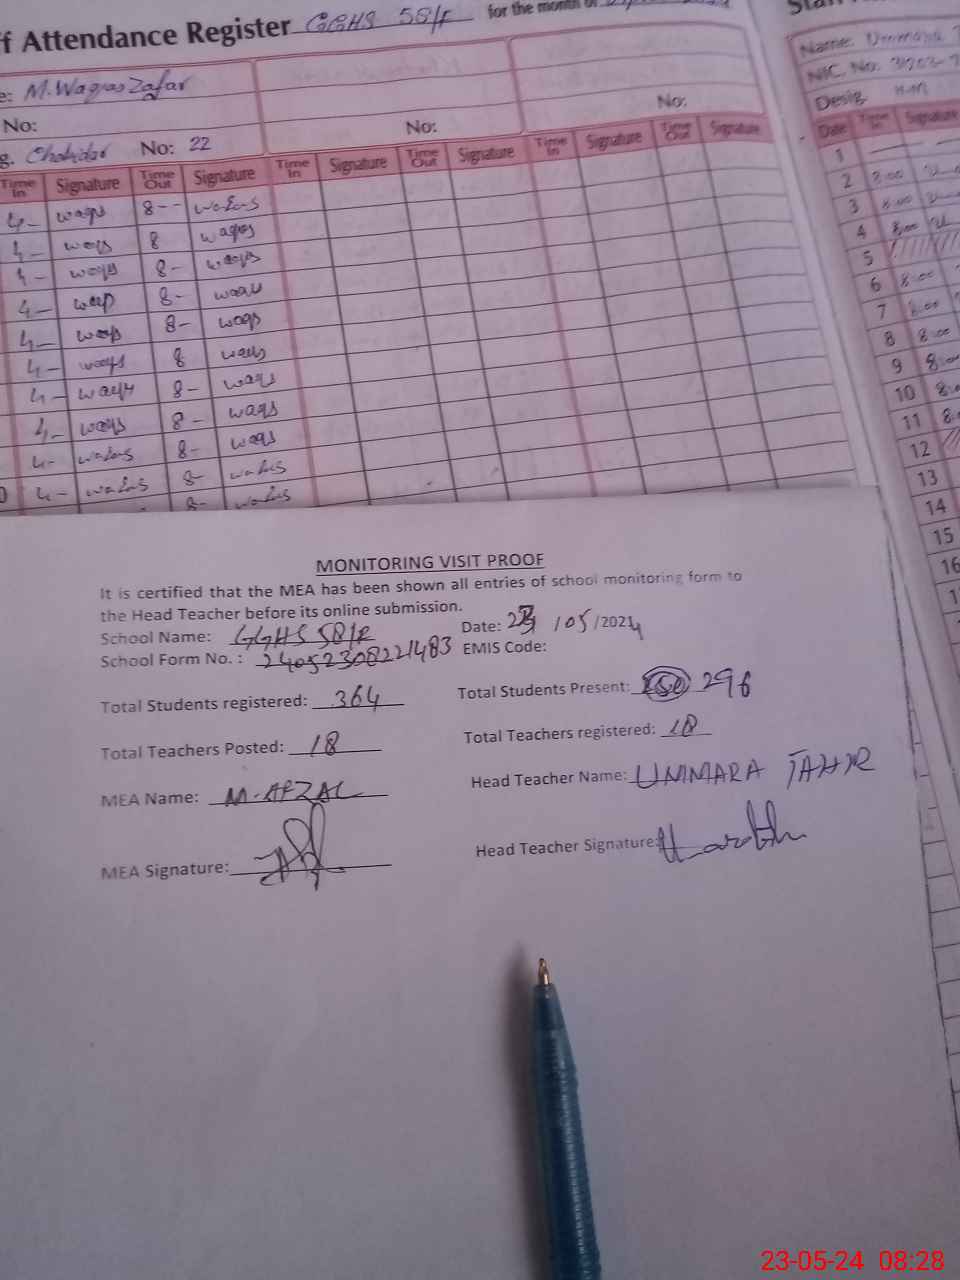 f Attendance Register GGHS 58/F for the month of
e: M.Waqas Zafar
No:
g. Chokidar No: 22
No:
No:
Time In Signature Time Out Signature Time In Signature Time Out Signature Time In Signature Time Out Signature
4- waqs 8-- wafas
4- waqs 8 waqas
4- waqs 8- waqas
4- waqs 8- waqas
4- waqs 8- waqs
4- waqs 8 waqs
4- waqs 8- waqs
4- waqs 8- waqs
4- wafas 8- waqs
0 4- wafas 8- wafas
8- wafas
Name: Ummara
NIC. No:
Desig. H.M
Date Time In Signature
1
2 8:00
3 8:00
4 8:00
5
6 8:00
7 8:00
8 8:00
9 8:00
10 8:0
11 8:
12
13
14
15
16
MONITORING VISIT PROOF
It is certified that the MEA has been shown all entries of school monitoring form to
the Head Teacher before its online submission.
School Name: GGHS 58/R Date: 23/05/2024
School Form No. : 24052308221483 EMIS Code:
Total Students registered: 364 Total Students Present: 296
Total Teachers Posted: 18 Total Teachers registered: 18
MEA Name: M. AFZAL Head Teacher Name: UMMARA TAHIR
MEA Signature: Head Teacher Signature:
23-05-24 08:28